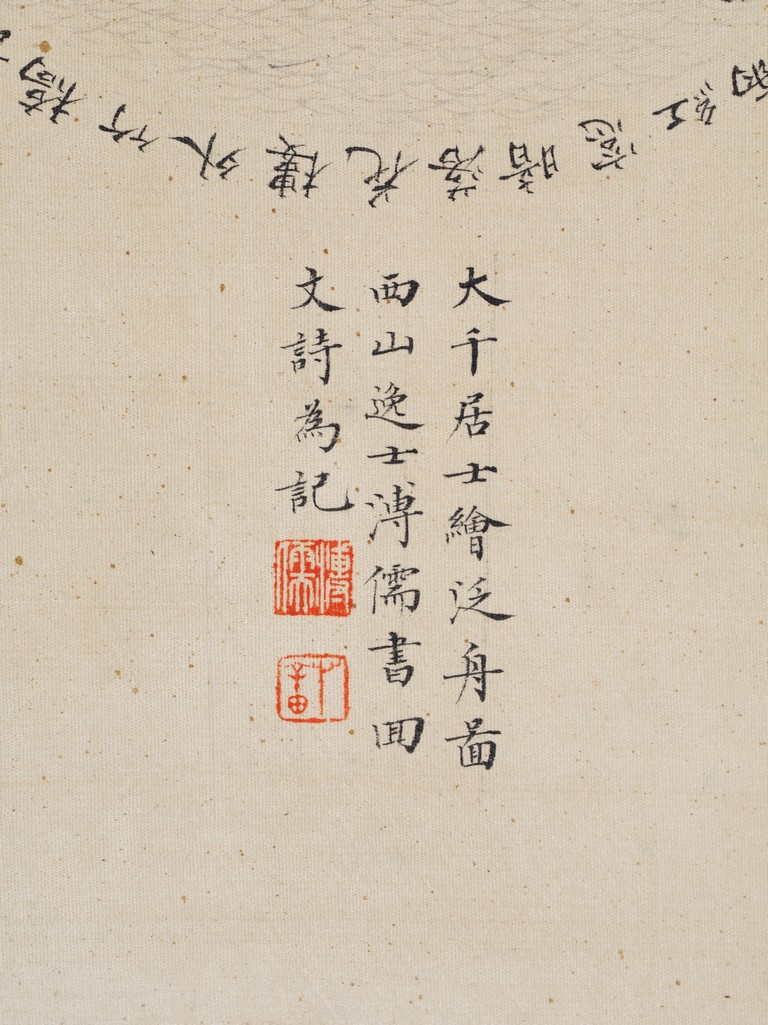 紅窗暗落花樓外竹橋
大千居士繪泛舟啚
西山逸士溥儒書回
文詩為記
溥儒